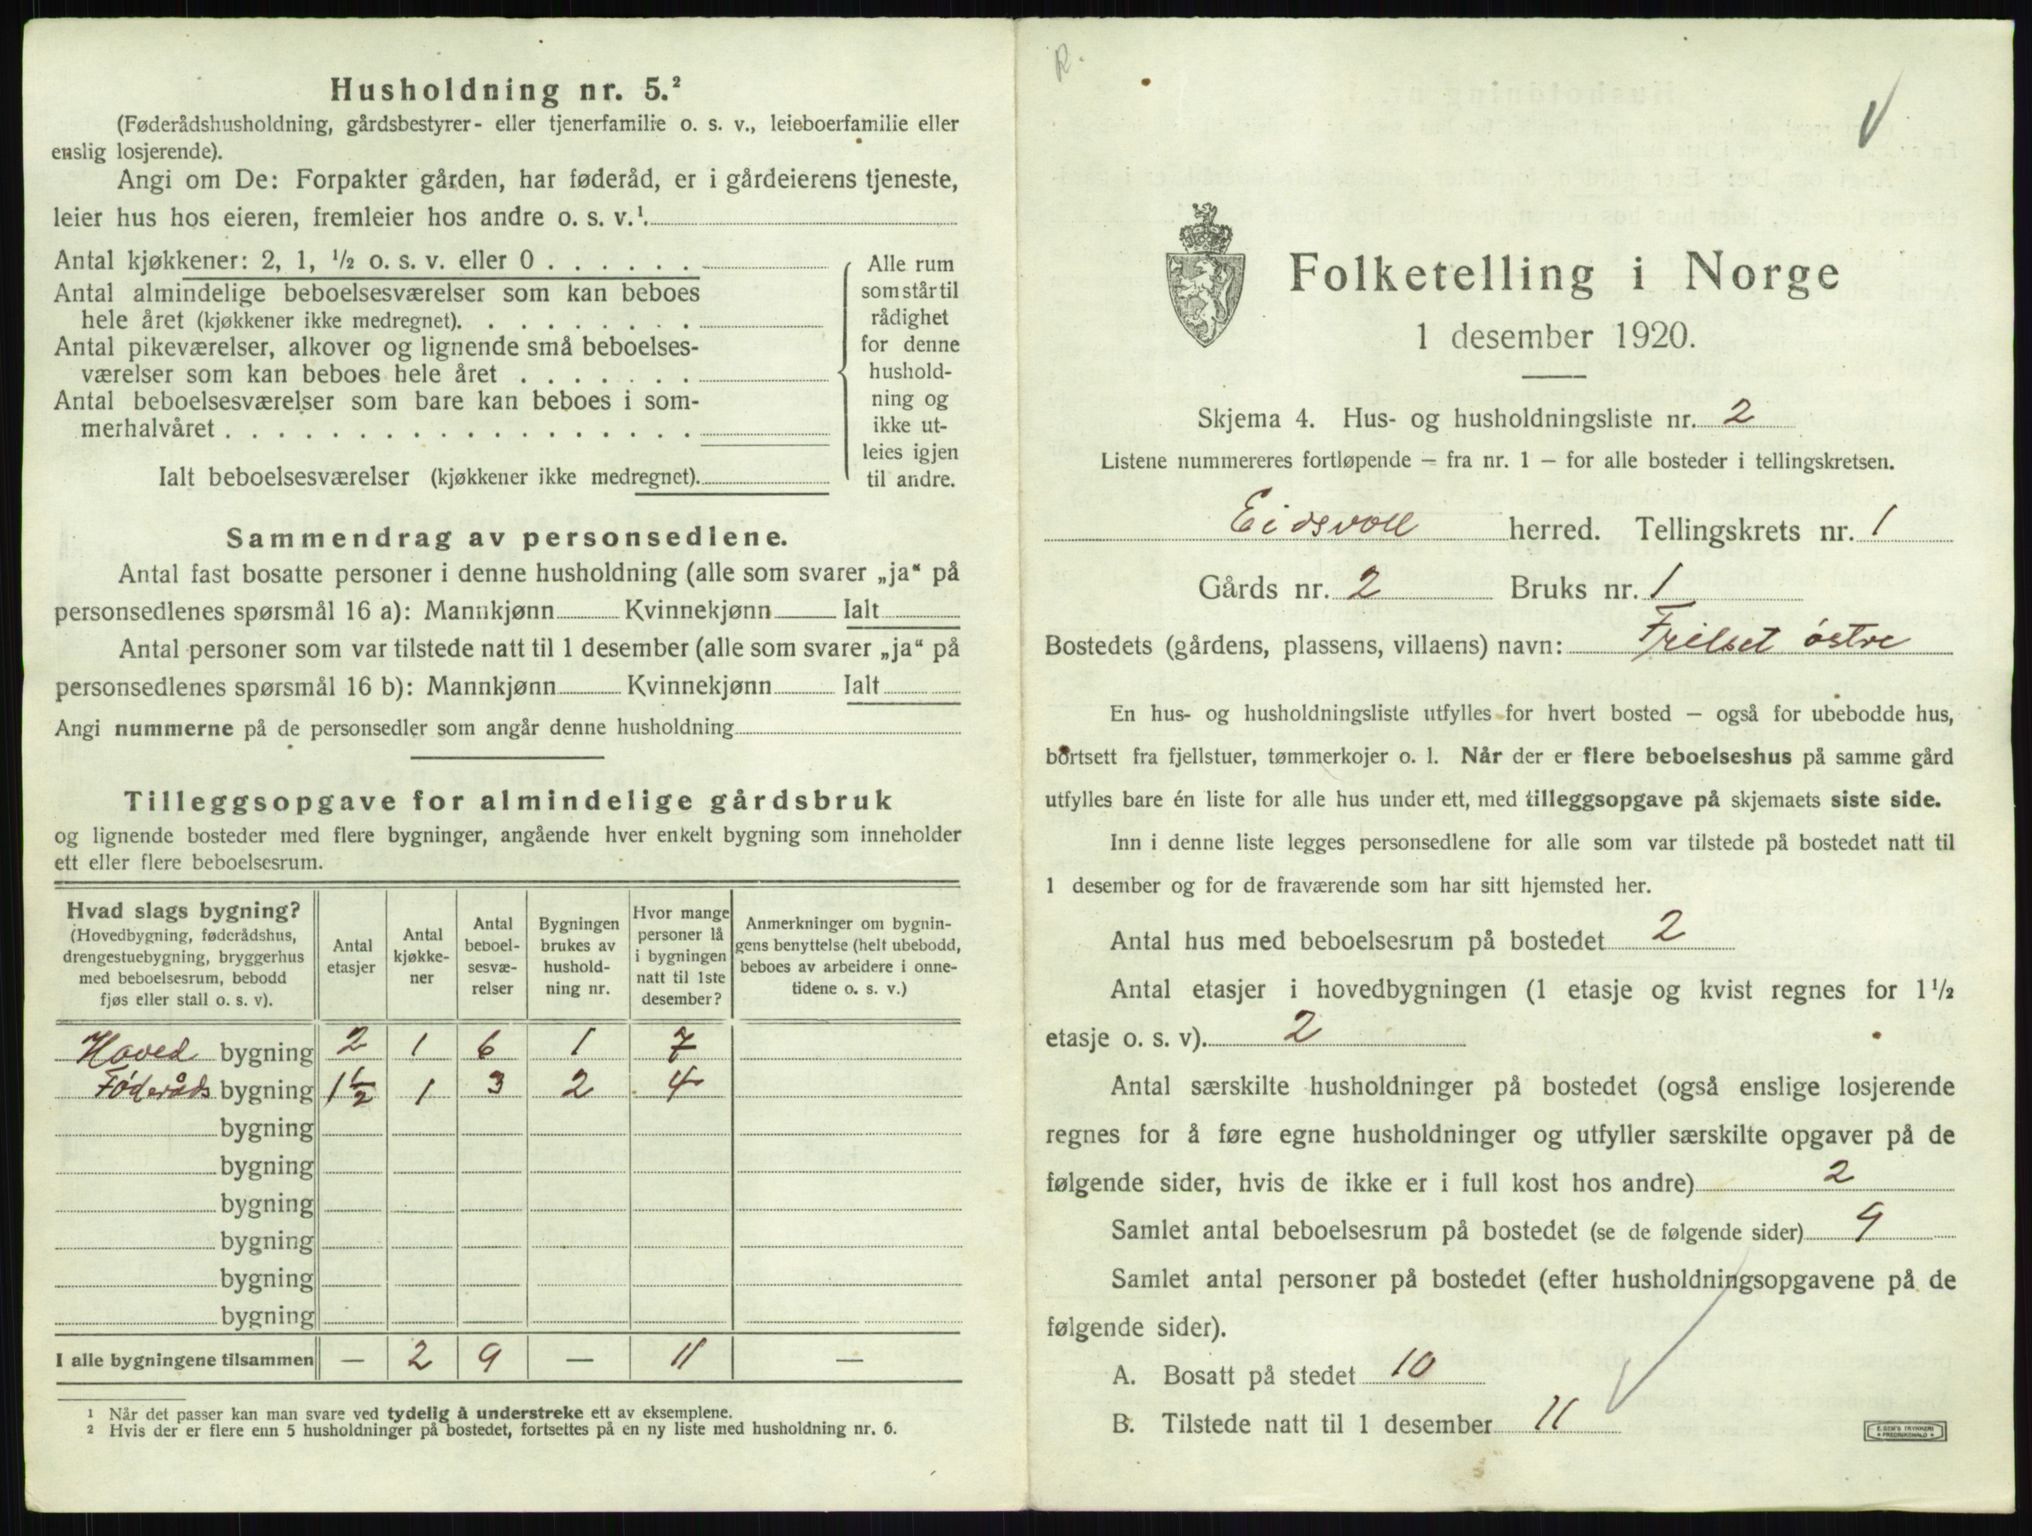 Husholdning nr. 5.²
(Føderådshusholdning, gårdsbestyrer- eller tjenerfamilie o. s. v., leieboerfamilie eller
enslig losjerende).
Angi om De: Forpakter gården, har føderåd, er i gårdeierens tjeneste,
leier hus hos eieren, fremleier hos andre o. s. v.¹
Antal kjøkkener: 2, 1, ½ o. s. v. eller 0 . . . . . .
Antal almindelige beboelsesværelser som kan beboes
hele året (kjøkkener ikke medregnet). . . . . . . . .
Antal pikeværelser, alkover og lignende små beboelses-
værelser som kan beboes hele året . . . . . . .
Antal beboelsesværelser som bare kan beboes i som-
merhalvåret . . . . . . . . . . . . . . . . . .
Ialt beboelsesværelser (kjøkkener ikke medregnet).
Alle rum
som står til
rådighet
for denne
hushold-
ning og
ikke ut-
leies igjen
til andre.
Sammendrag av personsedlene.
Antal fast bosatte personer i denne husholdning (alle som svarer „ja“ på
personsedlenes spørsmål 16 a): Mannkjønn Kvinnekjønn Ialt
Antal personer som var tilstede natt til 1 desember (alle som svarer „ja“ på
personsedlenes spørsmål 16 b): Mannkjønn Kvinnekjønn Ialt
Angi nummerne på de personsedler som angår denne husholdning
Tilleggsopgave for almindelige gårdsbruk
og lignende bosteder med flere bygninger, angående hver enkelt bygning som inneholder
ett eller flere beboelsesrum.
Hvad slags bygning?
(Hovedbygning, føderådshus,
drengestuebygning, bryggerhus
med beboelsesrum, bebodd
fjøs eller stall o. s. v).
Antal
etasjer
Antal
kjøkke-
ner
Antal
beboel-
sesvæ-
relser
Bygningen
brukes av
hushold-
ning nr.
Hvor mange
personer lå
i bygningen
natt til 1ste
desember?
Anmerkninger om bygnin-
gens benyttelse (helt ubebodd,
beboes av arbeidere i onne-
tidene o. s. v.)
Hoved bygning 2 1 6 1 7
Føderåds bygning 1½ 1 3 2 4
bygning
bygning
bygning
bygning
bygning
bygning
I alle bygningene tilsammen — 2 9 — 11 —
¹ Når det passer kan man svare ved tydelig å understreke ett av eksemplene.
² Hvis der er flere enn 5 husholdninger på bostedet, fortsettes på en ny liste med husholdning nr. 6.
R.
Folketelling i Norge
1 desember 1920.
Skjema 4. Hus- og husholdningsliste nr. 2
Listene nummereres fortløpende – fra nr. 1 – for alle bosteder i tellingskretsen.
Eidsvoll herred. Tellingskrets nr. 1
Gårds nr. 2 Bruks nr. 1
Bostedets (gårdens, plassens, villaens) navn: Frilset østre
En hus- og husholdningsliste utfylles for hvert bosted – også for ubebodde hus,
bortsett fra fjellstuer, tømmerkojer o. l. Når der er flere beboelseshus på samme gård
utfylles bare én liste for alle hus under ett, med tilleggsopgave på skjemaets siste side.
Inn i denne liste legges personsedlene for alle som var tilstede på bostedet natt til
1 desember og for de fraværende som har sitt hjemsted her.
Antal hus med beboelsesrum på bostedet 2
Antal etasjer i hovedbygningen (1 etasje og kvist regnes for 1½
etasje o. s. v). 2
Antal særskilte husholdninger på bostedet (også enslige losjerende
regnes for å føre egne husholdninger og utfyller særskilte opgaver på de
følgende sider, hvis de ikke er i full kost hos andre) 2
Samlet antal beboelsesrum på bostedet (se de følgende sider) 9
Samlet antal personer på bostedet (efter husholdningsopgavene på de
følgende sider).
A. Bosatt på stedet 10
B. Tilstede natt til 1 desember 11